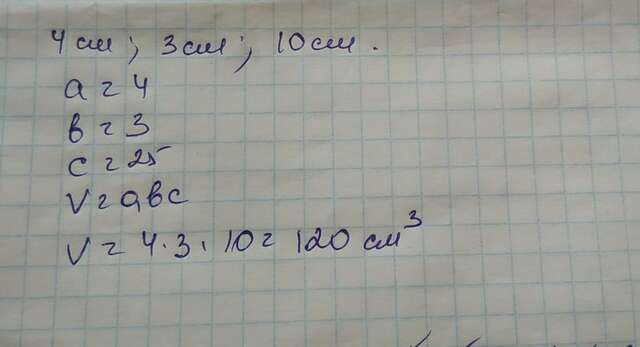 4 см; 3 см; 10 см.
a = 4
в = 3
c = 25
V = aвc
V = 4·3·10 = 120 см³